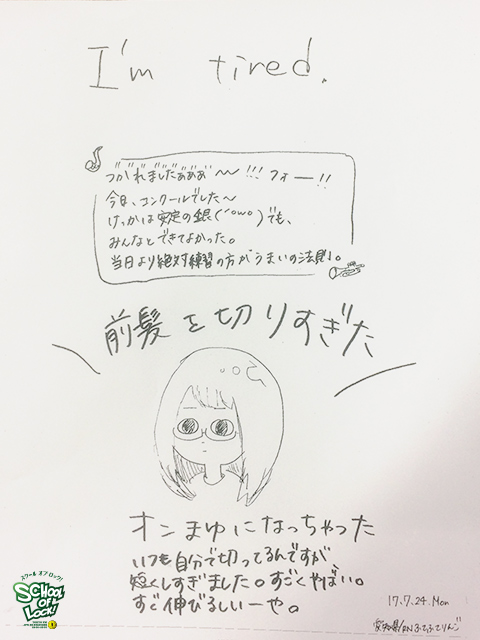 I'm tired.
づがれましだぁぁぁ〜〜!!! フォー!!
今日、コンクールでした〜
けっかは安定の銀(´ºωº`)でも、
みんなとできてよかった。
当日より絶対練習の方がうまいの法則。
前髪を切りすぎた
オンまゆになっちゃった
いつも自分で切ってるんですが、
短くしすぎました。すごくやばい。
すぐ伸びるしいーや。
17.7.24.Mon
スクール オブ ロック!
SCHOOL OF LOCK!